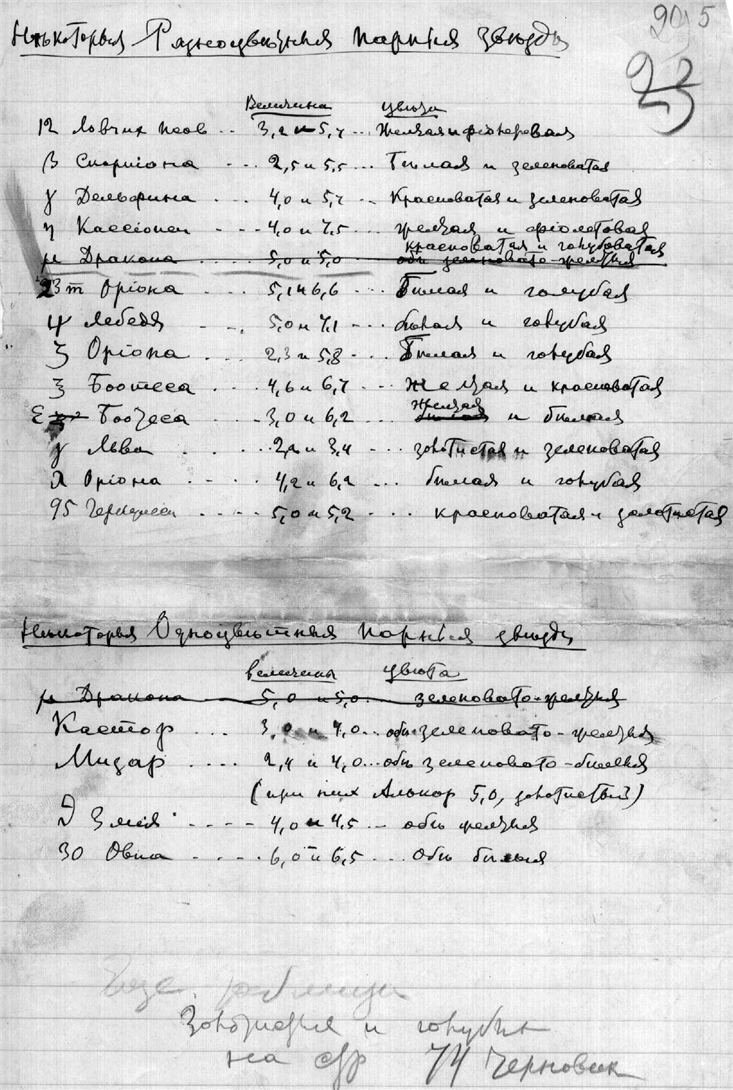 295
23
Нѣкоторыя Разноцвѣтныя парныя звѣзды
Величина цвѣта
12 Ловчих псов .. 3,2 и 5,7 ... Желтая и фіолетовая
β Скорпіона ... 2,5 и 5,5 .. Бѣлая и зеленоватая
γ Дельфина ... 4,0 и 5,7 .. Красноватая и зеленоватая
η Кассіопеи ... 4,0 и 7,5 .. желтая и фіолетовая
красноватая и голубоватая
μ Дракона ... 5,0 и 5,0 обѣ зеленовато-желтыя
23 m Оріона ... 5,1 и 6,6 Бѣлая и голубая
ψ Лебедя ... 5,0 и 7,1 ... бѣлая и голубая
ζ Оріона .... 2,3 и 5,8 .. Бѣлая и голубая
ξ Боотеса .... 4,6 и 6,7 ... Желтая и красноватая
Желтая
ε Боотеса ... 3,0 и 6,2 .. и бѣлая
γ Льва .... 2,2 и 3,4 .. золотистая и зеленоватая
λ Оріона .... 4,2 и 6,2 ... бѣлая и голубая
95 Геркулеса .... 5,0 и 5,2 ... красноватая и золотистая
Нѣкоторыя Одноцвѣтныя парныя звѣзды
величины цвѣта
μ Дракона 5,0 и 5,0 зеленовато-желтыя
Кастор ... 3,0 и 4,0 ... обѣ зеленовато-желтыя
Мицар .... 2,4 и 4,0 ... обѣ зеленовато-бѣлыя
(при них Алькор 5,0, золотистый)
θ Змѣя .... 4,0 и 4,5 ... обѣ желтыя
30 Овна .... 6,0 и 6,5 ... обѣ бѣлыя
Еще
и голубыя
на стр 74 Черновик